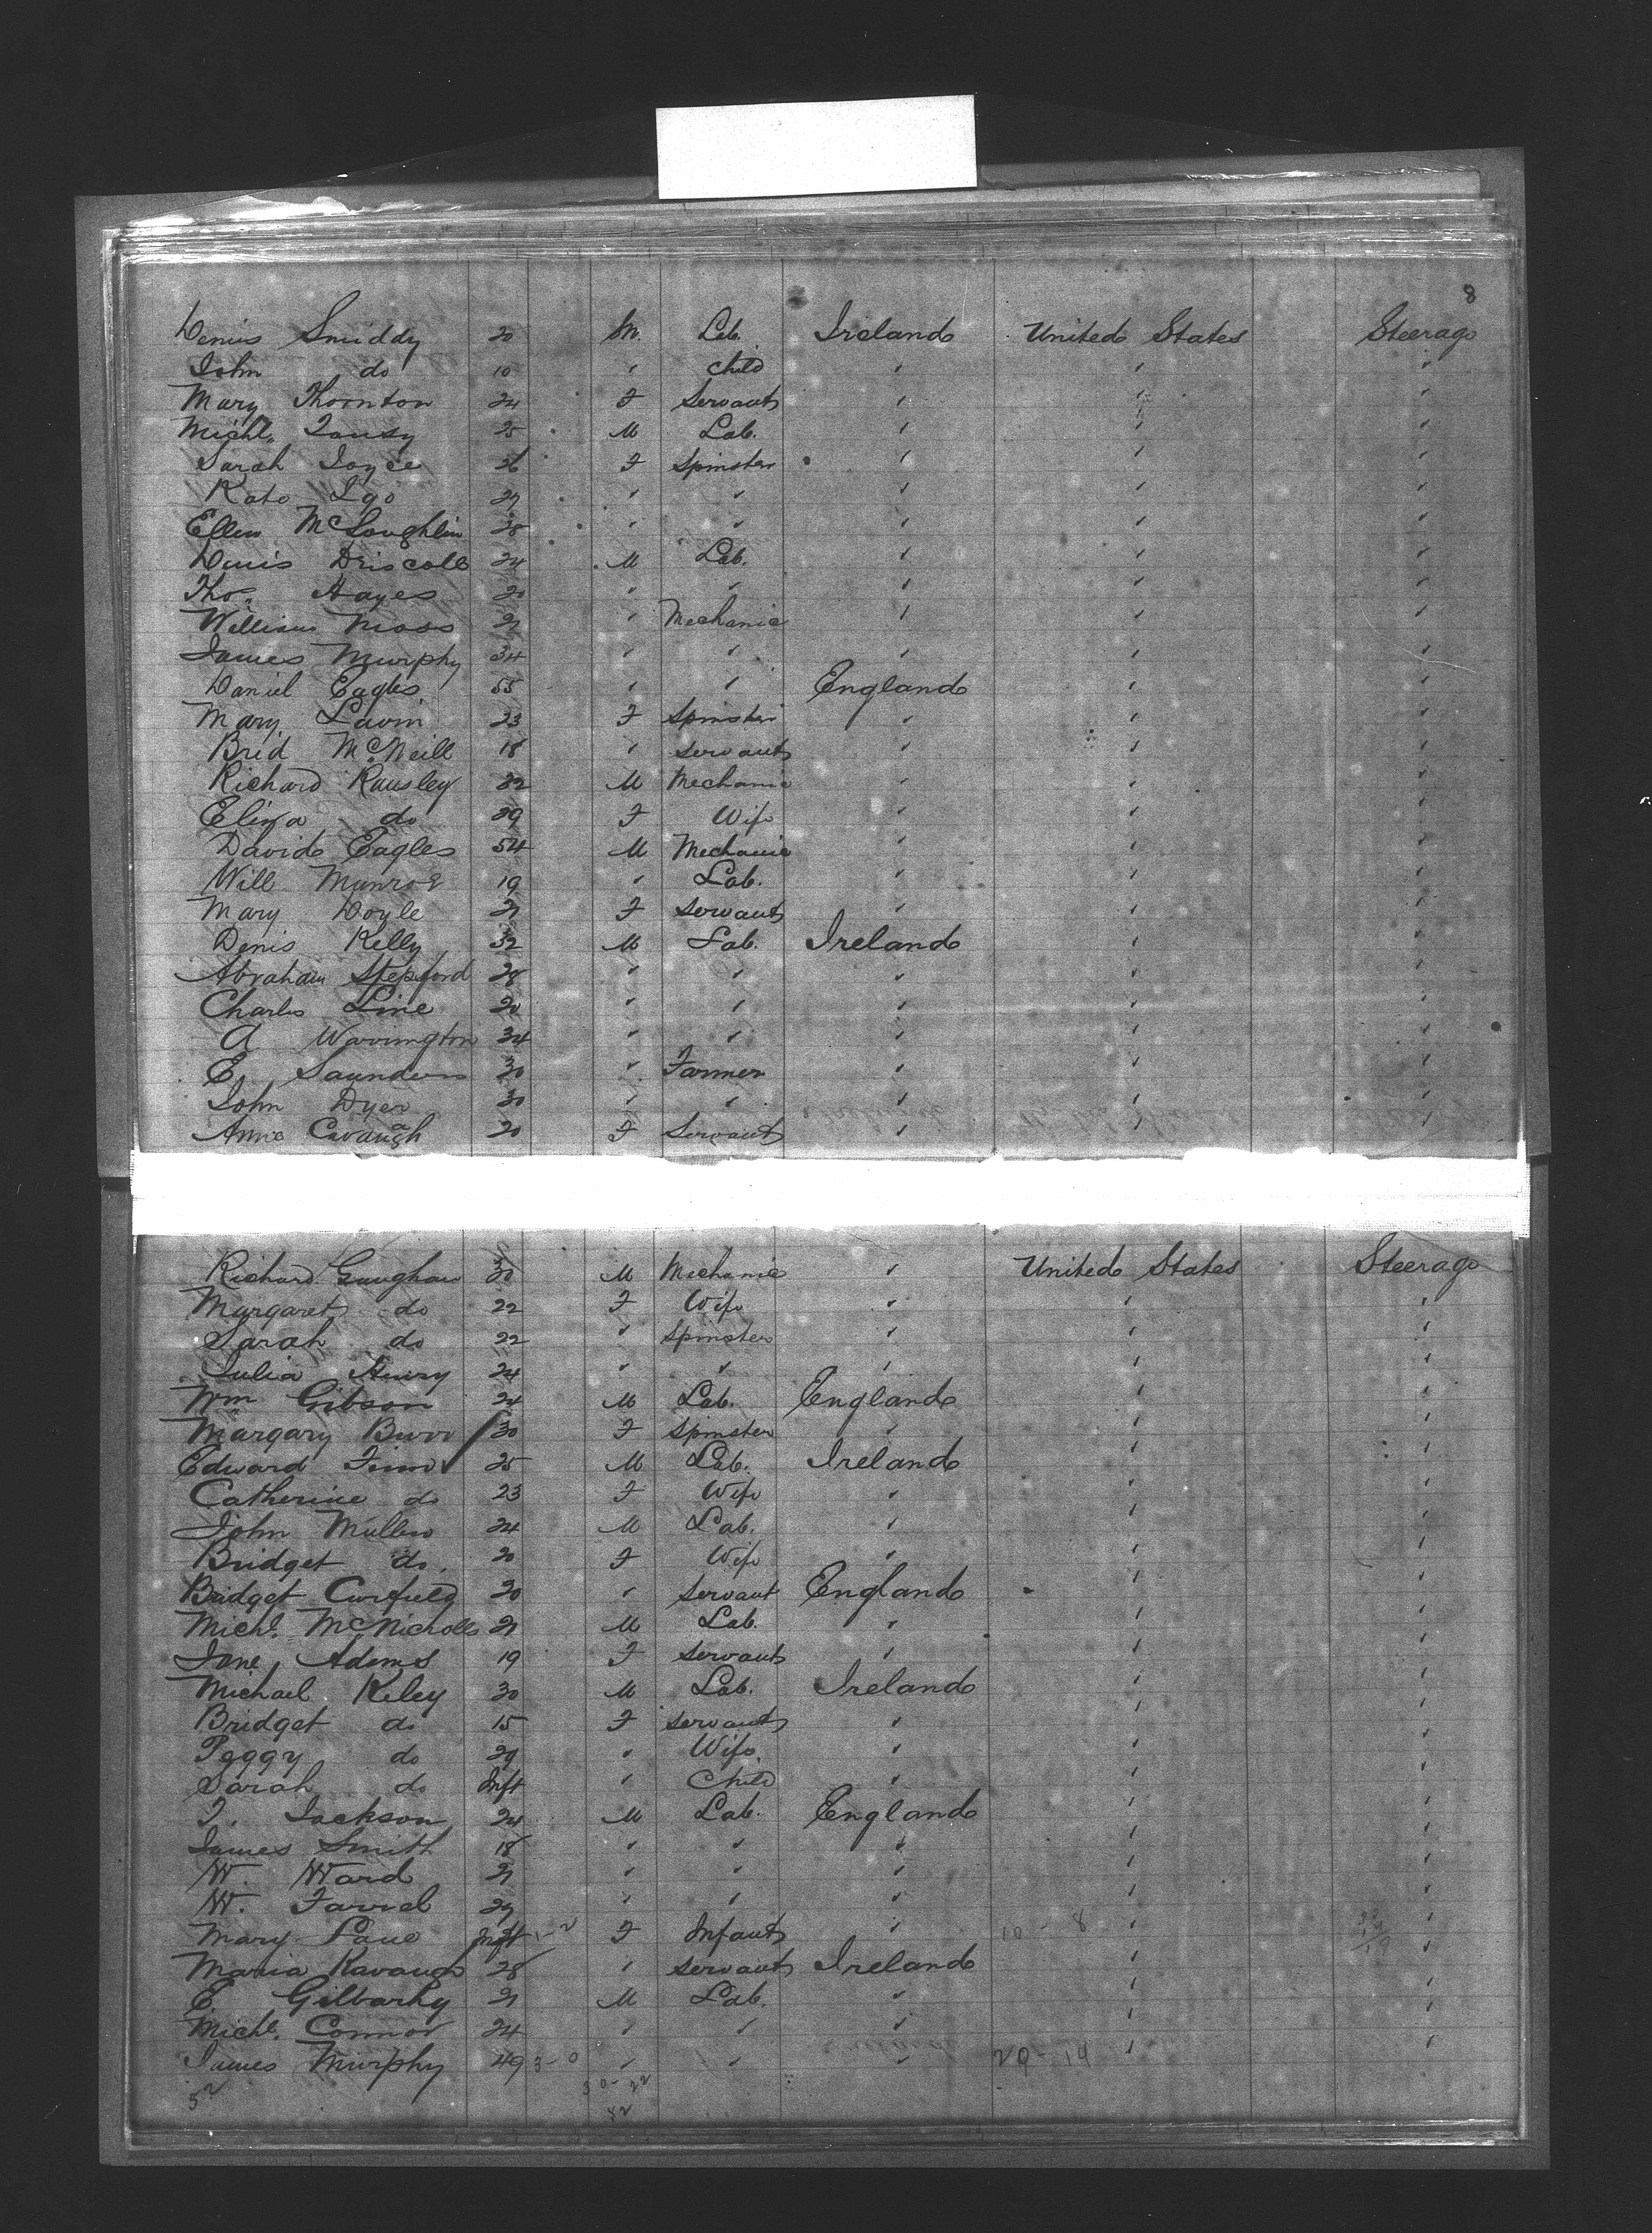 8
Denis Smiddy 20 M. Lab. Ireland United States Steerage
John do 10 " Child " " "
Mary Thornton 24 F Servant " " "
Michl. 25 M Lab. " " "
Sarah Joyce 26 F Spinster " " "
Kate Igo 29 " " " " "
Ellen McLoughlin 28 " " " " "
Denis Driscoll 24 M Lab. " " "
Thos. Hayes 20 " " " " "
William Moss 21 " Mechanic " " "
James Murphy 34 " " " " "
Daniel Eagles 55 " " England " "
Mary Lavin 23 F Spinster " " "
Brid McNeill 18 " Servant " " "
Richard 32 M Mechanic " " "
Eliza do 29 F Wife " " "
David Eagles 54 M Mechanic " " "
Will Munroe 19 " Lab. " " "
Mary Doyle 21 F Servant " " "
Denis Kelly 32 M Lab. Ireland " "
Abraham Stepford 28 " " " " "
Charles Line 20 " " " " "
A Warrington 34 " " " " "
E. Saunders 30 " Farmer " " "
John Dyer 30 " " " " "
Anne Cavanagh 20 F Servant " " "
Richard Gaughan 30 M Mechanic " United States Steerage
Margaret do 22 F Wife " " "
Sarah do 22 " Spinster " " "
Julia 24 " " " " "
Wm Gibson 24 M Lab. England " "
Margary Burr 30 F Spinster " " "
Edward Finn 25 M Lab. Ireland " "
Catherine do 23 F Wife " " "
John Mullen 24 M Lab. " " "
Bridget do. 20 F Wife " " "
Bridget Curfield 20 " Servant England " "
Michl. McNicholls 21 M Lab. " " "
Jane Adams 19 F Servant " " "
Michael Kiley 30 M Lab. Ireland " "
Bridget do 15 F Servant " " "
Peggy do 29 " Wife " " "
Sarah do Inft " Child " " "
T. Jackson 24 M Lab. England " "
James Smith 18 " " " " "
W. Ward 21 " " " " "
W. Farrel 29 " " " " "
Mary Lane Inft F Infant " 10 - 8 " "
Maria Kavangh 28 " Servant Ireland " "
E. 21 M Lab. " " "
Michl. Connor 24 " " " " "
James Murphy 49 3-0 " " " 29-14 " "
52 30-22
52